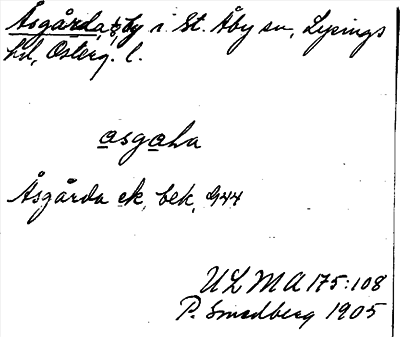 Åsgårda, by i St. Åby sn, Lysings
hd, Österg. l.
asgaha
Åsgårda ek, bek, 944
ULMA 175:108
P. Smedberg 1905